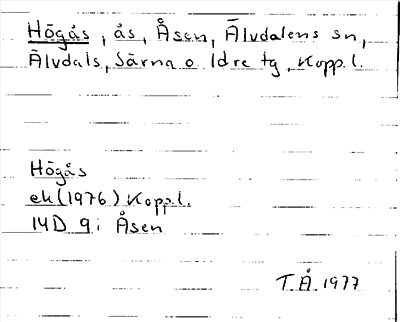 Högås, ås, Åsen, Älvdalens sn,
Älvdals, Särna o Idre tg, Kopp.l.
Högås
ek (1976) Kopp.l.
14D 9i Åsen
T.Å. 1977